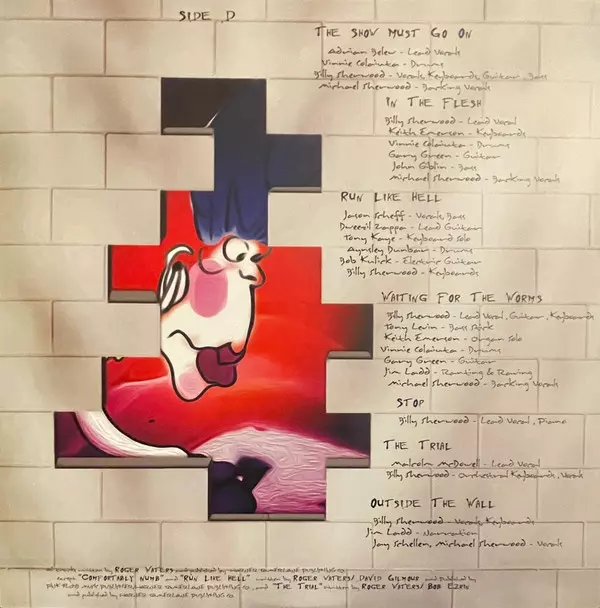 SIDE D
THE SHOW MUST GO ON
Adrian Belew - Lead Vocals
Vinnie Colaiuta - Drums
Billy Sherwood - Vocals, Keyboards, Guitar, Bass
Michael Sherwood - Barking Vocals
IN THE FLESH
Billy Sherwood - Lead Vocal
Keith Emerson - Keyboards
Vinnie Colaiuta - Drums
Gary Green - Guitar
John Giblin - Bass
Michael Sherwood - Barking Vocals
RUN LIKE HELL
Jason Scheff - Vocals, Bass
Dweezil Zappa - Lead Guitar
Tony Kaye - Keyboard Solo
Aynsley Dunbar - Drums
Bob Kulick - Electric Guitar
Billy Sherwood - Keyboards
WAITING FOR THE WORMS
Billy Sherwood - Lead Vocal, Guitar, Keyboards
Tony Levin - Bass, Stick
Keith Emerson - Organ Solo
Vinnie Colaiuta - Drums
Gary Green - Guitar
Jim Ladd - Ranting & Raving
Michael Sherwood - Barking Vocals
STOP
Billy Sherwood - Lead Vocal, Piano
THE TRIAL
Malcolm McDowell - Lead Vocal
Billy Sherwood - Orchestral Keyboards, Vocals
OUTSIDE THE WALL
Billy Sherwood - Vocals, Keyboards
Jim Ladd - Narration
Jay Schellen, Michael Sherwood - Vocals
written by ROGER WATERS and published by
except "COMFORTABLY NUMB" and "RUN LIKE HELL" written by ROGER WATERS/DAVID GILMOUR and published by
and "THE TRIAL" written by ROGER WATERS/BOB EZRIN
and published by